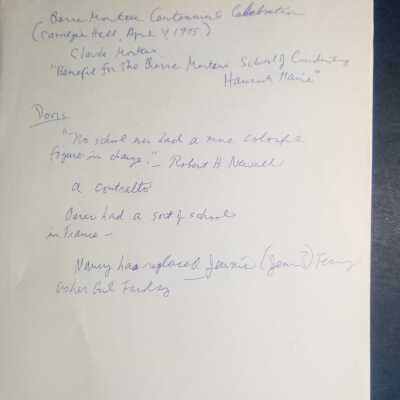 Pierre Monteux Centennial Celebration
(Carnegie Hall, April 4, 1975)
Claude Monteux
"Benefit for the Pierre Monteux School of Conducting
Hancock Maine"
Doris
"No school ever had a more colorful
figure in charge." — Robert H. Newall
a contralto
had a sort of school
in France —
Nancy has replaced Jeannie
Girl Friday